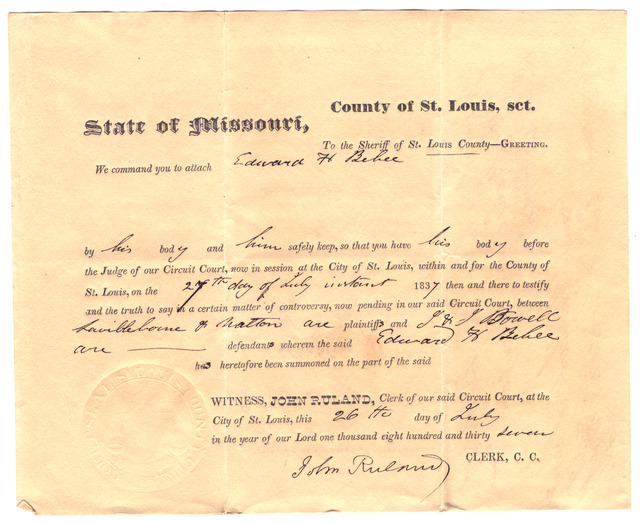 County of St. Louis, sct.
State of Missouri,
To the Sheriff of St. Louis County—GREETING.
We command you to attach Edward H Bebee
by his body and him safely keep, so that you have his body before
the Judge of our Circuit Court, now in session at the City of St. Louis, within and for the County of
St. Louis, on the 27th day of July instant 1837 then and there to testify
and the truth to say in a certain matter of controversy, now pending in our said Circuit Court, between
& are plaintiffs and J & J Powell
are defendants wherein the said Edward H Bebee
has heretofore been summoned on the part of the said
WITNESS, JOHN RULAND, Clerk of our said Circuit Court, at the
City of St. Louis, this 26th day of July
in the year of our Lord one thousand eight hundred and thirty seven
John Ruland CLERK, C. C.